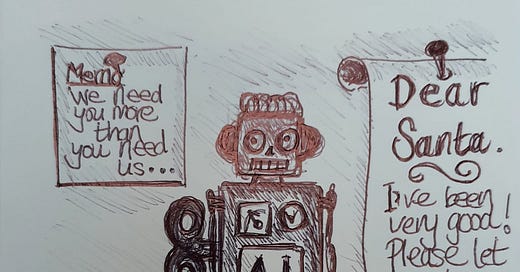 Memo
we need
you more
than
you need
us...
AI
Dear
Santa.
I've been
very good!
Please let